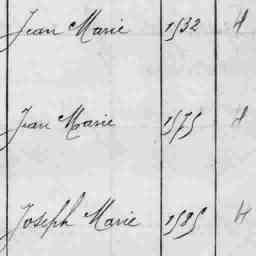 Jean Marie 1532 H
Jean Marie 1575 H
Joseph Marie 1585 H